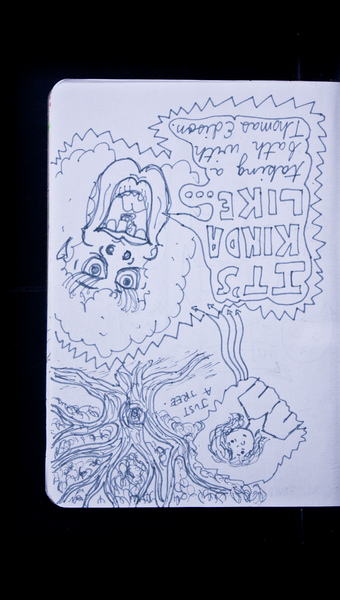 IT'S
KINDA
LIKE...
taking a
bath with
Thomas Edison.
JUST
A
TREE.